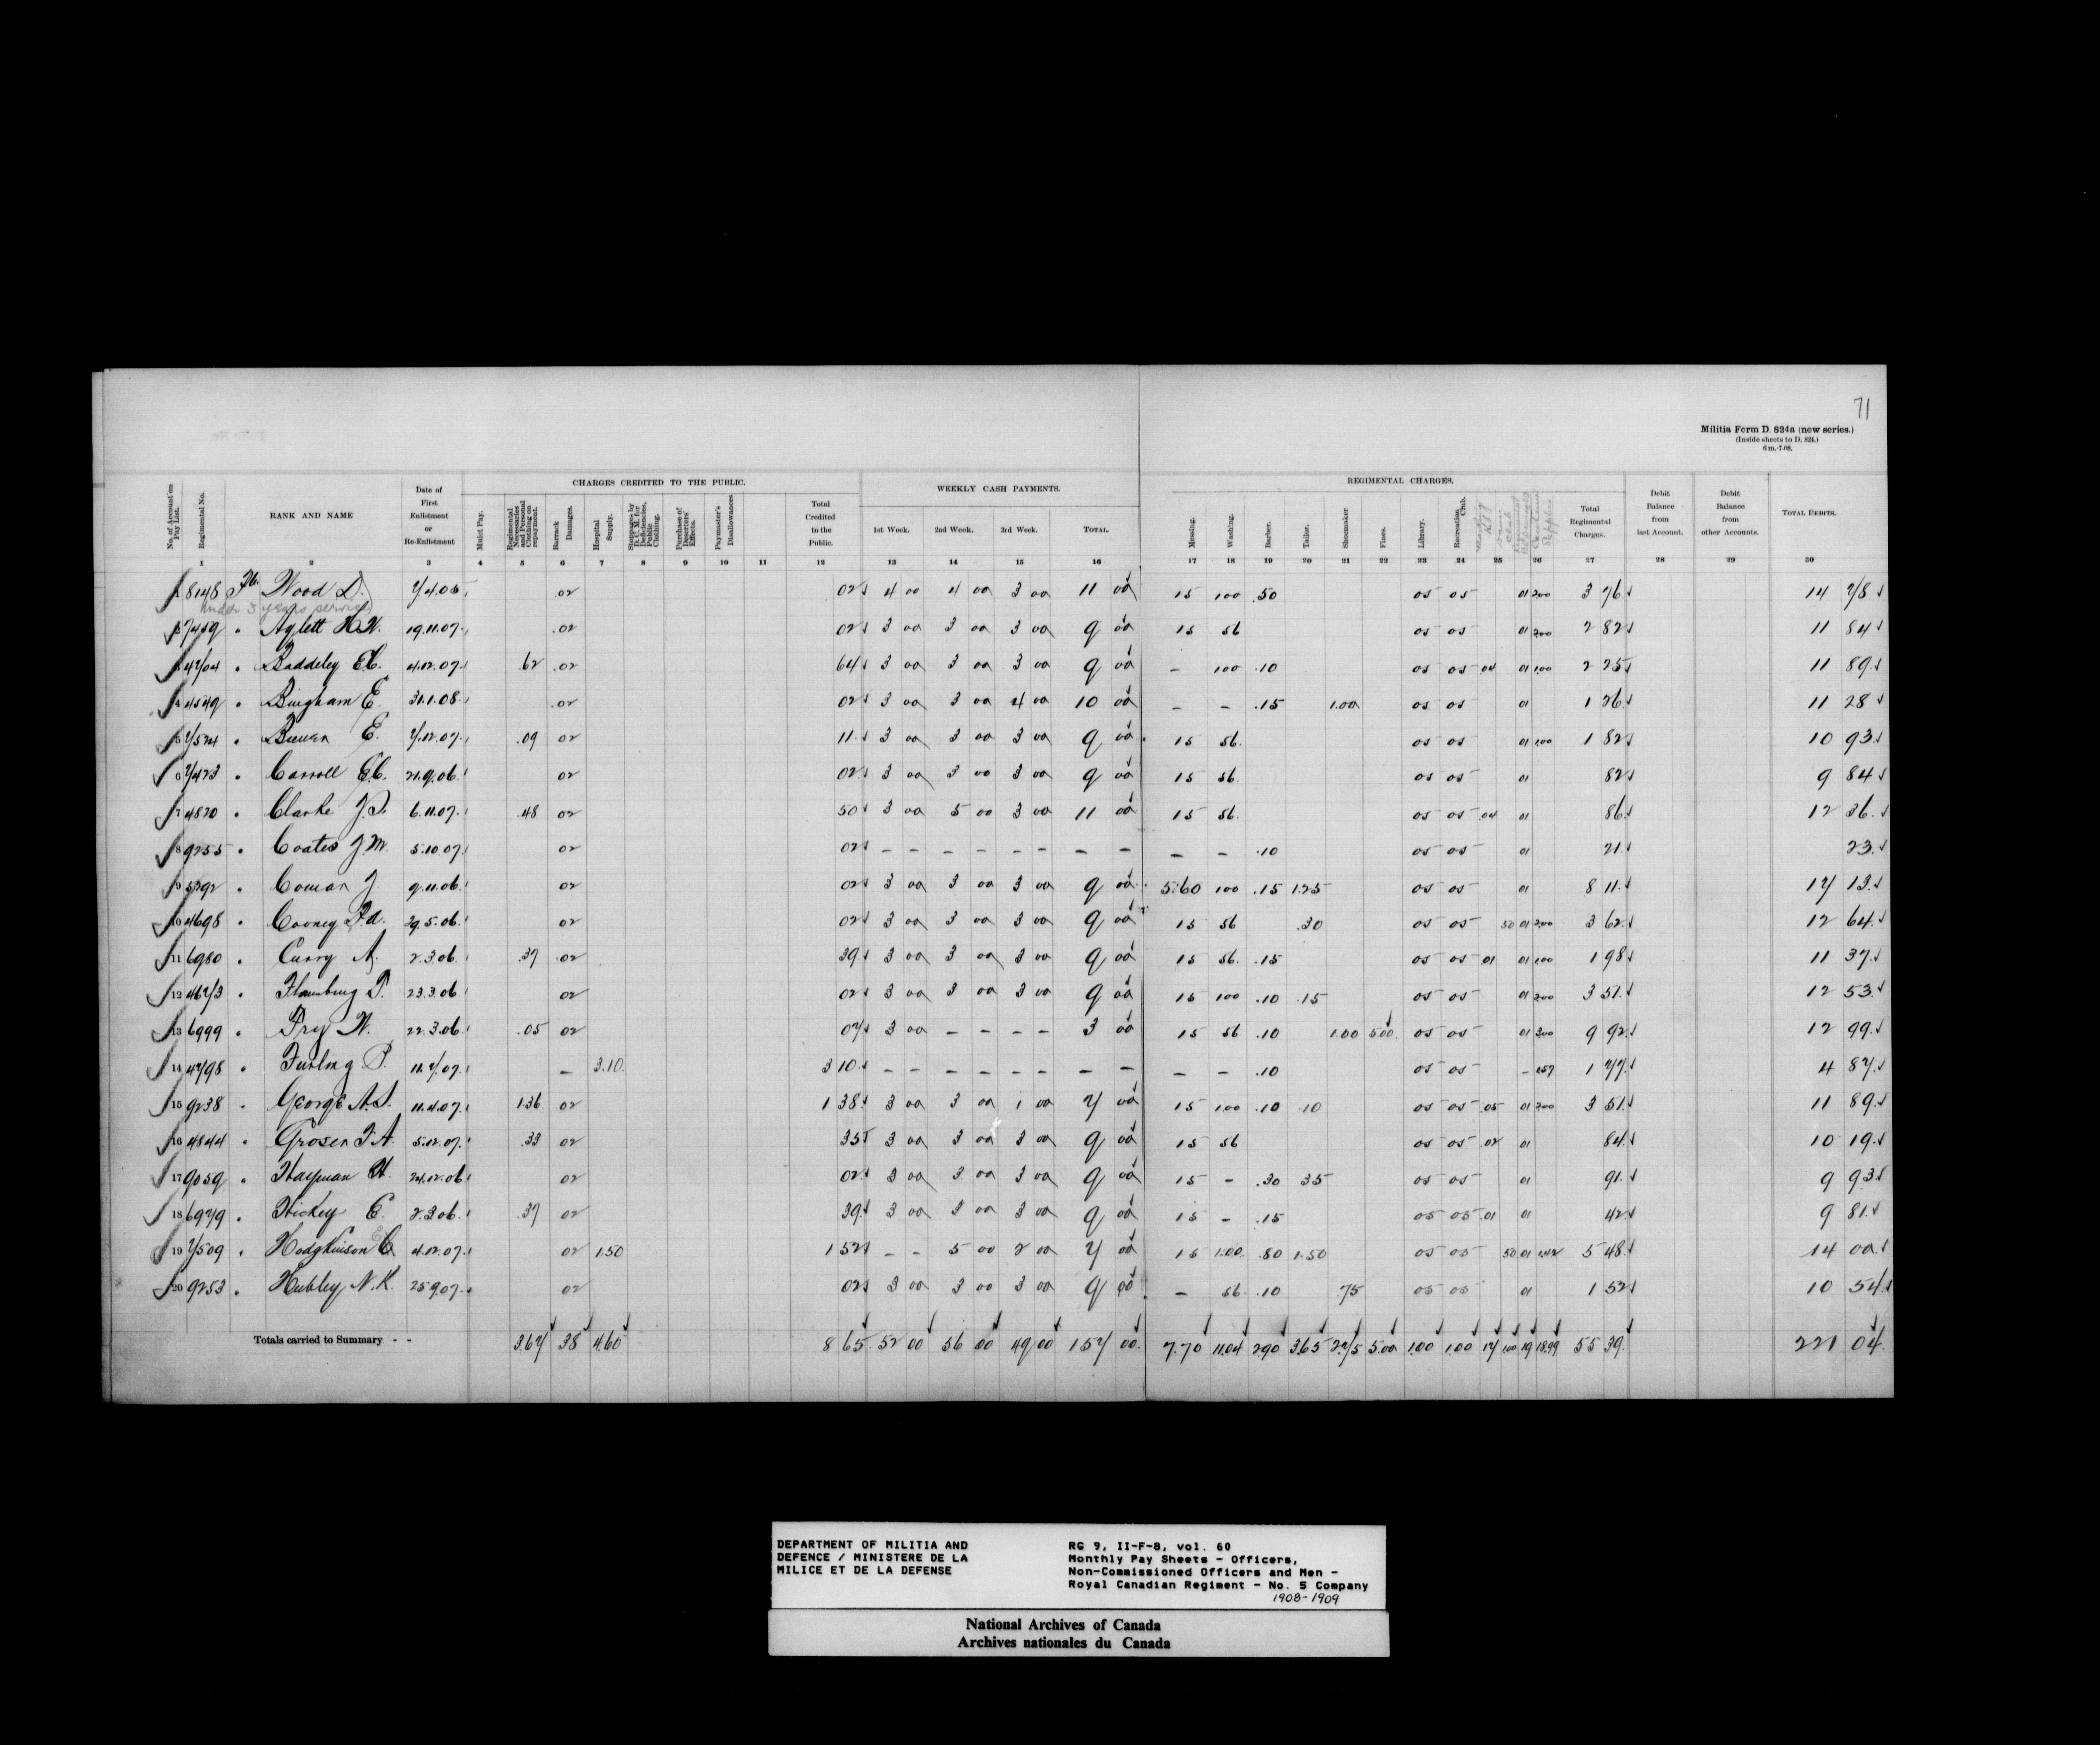 71
Militia Form D. 824a (new series.)
(Inside sheets to D. 824.)
6 m.-7-08.
No. of Account on Pay List. Regimental No. RANK AND NAME Date of First Enlistment or Re-Enlistment CHARGES CREDITED TO THE PUBLIC. WEEKLY CASH PAYMENTS. REGIMENTAL CHARGES. Debit Balance from last Account. Debit Balance from other Accounts. TOTAL DEBITS.
Mulct Pay. Regimental Necessaries and Personal Clothing on repayment. Barrack Damages. Hospital Supply. Stoppages by D.C.M. for Deficiencies, Public Clothing. Purchase of Deserters' Effects. Paymaster's Disallowances Total Credited to the Public. 1st Week. 2nd Week. 3rd Week. TOTAL. Messing. Washing. Barber. Tailor. Shoemaker Fines. Library. Recreation Club. Total Regimental Charges.
1 2 3 4 5 6 7 8 9 10 11 12 13 14 15 16 17 18 19 20 21 22 23 24 25 26 27 28 29 30
1 8148 Pte. Wood D. 7/4.05 .02 02 4 00 4 00 3 00 11 00 15 1 00 .50 05 05 01 2.00 3 76 14 78
under 3 years service
2 7459 " Aylett H.W. 19.11.07 .02 02 3 00 3 00 3 00 9 00 15 56 05 05 01 2.00 2 82 11 84
3 4704 " Baddeley E.C. 4.12.07 .62 .02 64 3 00 3 00 3 00 9 00 - 1 00 .10 05 05 .04 01 1.00 2 25 11 89
4 4549 " Bingham E. 31.1.08 .02 02 3 00 3 00 4 00 10 00 - - .15 1.00 05 05 01 1 26 11 28
5 7524 " Buwan E. 7.12.07 .09 02 11 3 00 3 00 3 00 9 00 15 56 05 05 01 1.00 1 82 10 93
6 7423 " Carroll E.C. 21.9.06 02 02 3 00 3 00 3 00 9 00 15 56 05 05 01 82 9 84
7 4820 " Clarke J.S. 6.11.07 .48 02 50 3 00 5 00 3 00 11 00 15 56 05 05 .04 01 86 12 36
8 9255 " Coates J.M. 5.10.07 02 02 - - - - - - - - - - .10 05 05 01 21 23
9 5292 " Coman J. 9.11.06 02 02 3 00 3 00 3 00 9 00 5.60 1 00 .15 1.25 05 05 01 8 11 17 13
10 4698 " Cooney Fd. 29.5.06 02 02 3 00 3 00 3 00 9 00 15 56 .30 05 05 50 01 2.00 3 62 12 64
11 6980 " Curry A. 2.3.06 .37 .02 39 3 00 3 00 3 00 9 00 15 56 .15 05 05 .01 01 1.00 1 98 11 37
12 4673 " Flansburg T. 23.3.06 02 02 3 00 3 00 3 00 9 00 15 1 00 .10 .15 05 05 01 2.00 3 51 12 53
13 6999 " Fry W. 22.3.06 .05 02 07 3 00 - - - - 3 00 15 56 .10 1.00 5.00 05 05 01 3.00 9 92 12 99
14 4798 " Furlong P. 11.7.07 - 3.10 3 10 - - - - - - - - - - .10 05 05 - 1.57 1 77 4 87
15 9238 " George A.S. 11.4.07 1.36 02 1 38 3 00 3 00 1 00 7 00 15 1.00 .10 .10 05 05 .05 01 2.00 3 51 11 89
16 4844 " Groser F.A. 5.12.07 .33 02 35 3 00 3 00 3 00 9 00 15 56 05 05 .02 01 84 10 19
17 9059 " Hayman H. 24.12.06 02 02 3 00 3 00 3 00 9 00 15 - .30 35 05 05 01 91 9 93
18 6979 " Hickey E. 2.3.06 .37 02 39 3 00 3 00 3 00 9 00 15 - .15 05 05 .01 01 42 9 81
19 7509 " Hodgkinson C. 4.12.07 02 1.50 1 52 - - 5 00 2 00 7 00 15 1.00 .80 1.50 05 05 50 01 1.42 5 48 14 00
20 9253 " Hubley N.K. 25.9.07 02 02 3 00 3 00 3 00 9 00 - 56 .10 .75 05 05 01 1 52 10 54
Totals carried to Summary - - 3.67 38 4.60 8 65 52 00 56 00 49 00 157 00 7.70 11.04 2.90 3.65 2.75 5.00 1.00 1.00 17 1.00 19 18.99 55 39 221 04
DEPARTMENT OF MILITIA AND DEFENCE / MINISTERE DE LA MILICE ET DE LA DEFENSE
RG 9, II-F-8, vol. 60
Monthly Pay Sheets - Officers,
Non-Commissioned Officers and Men -
Royal Canadian Regiment - No. 5 Company
1908-1909
National Archives of Canada
Archives nationales du Canada